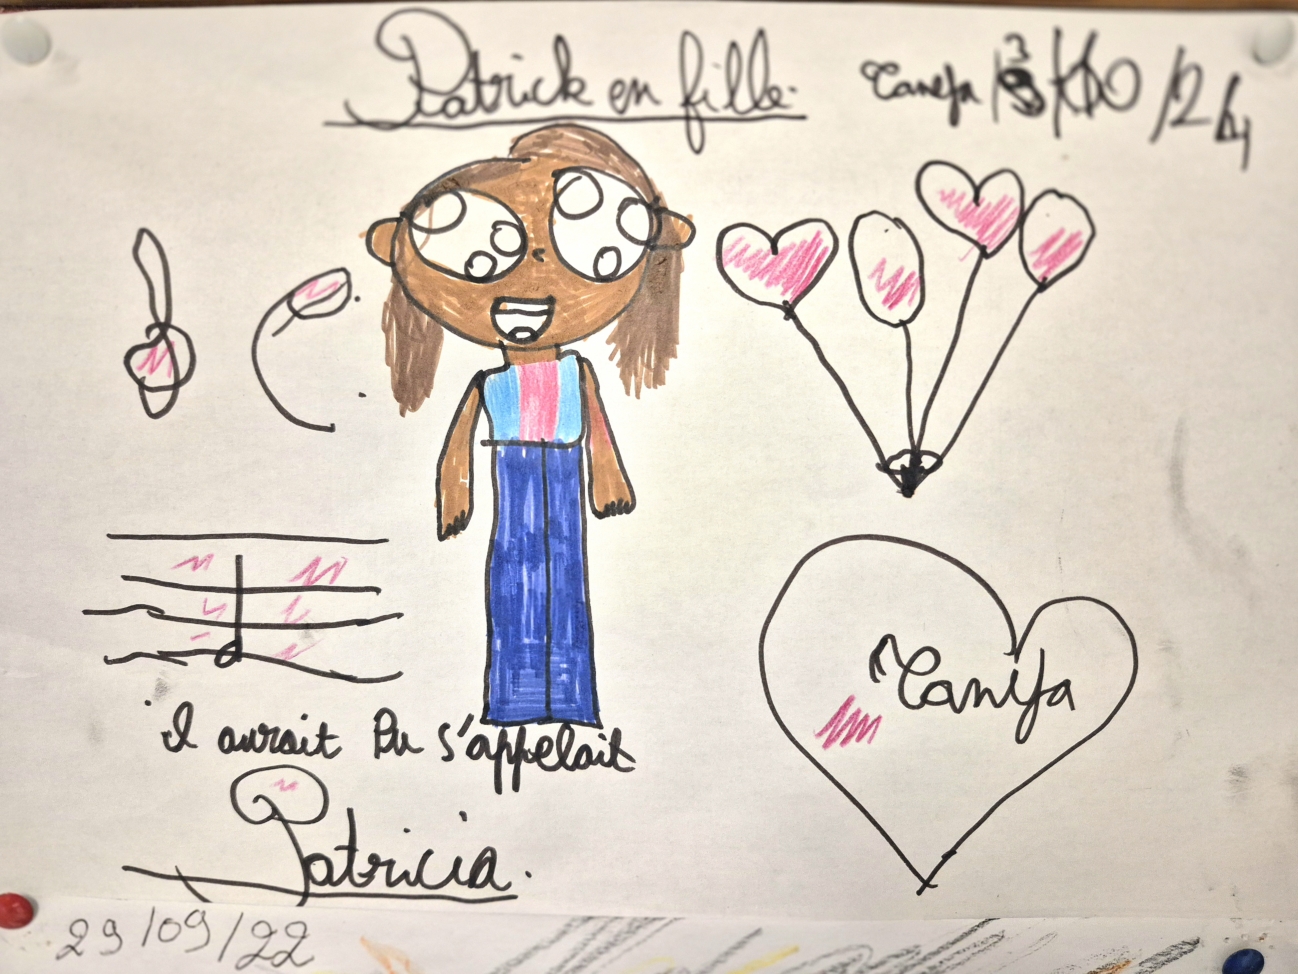 Patrick en fille.
Tanefa /10/24
Tanifa
Il aurait Pu s'appelait
Patricia.
29/09/22